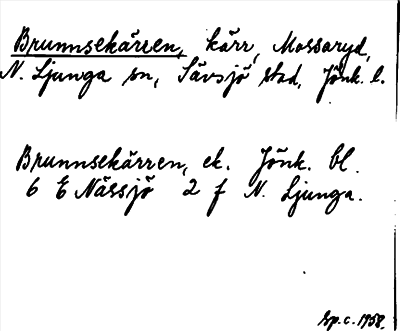 Brunnsekärren, kärr, Mossaryd,
N. Ljunga sn, Sävsjö stad, Jönk. l.
Brunnsekärren, ek. Jönk. bl.
6 E Nässjö 2 f N. Ljunga.
Sp.c. 1958.